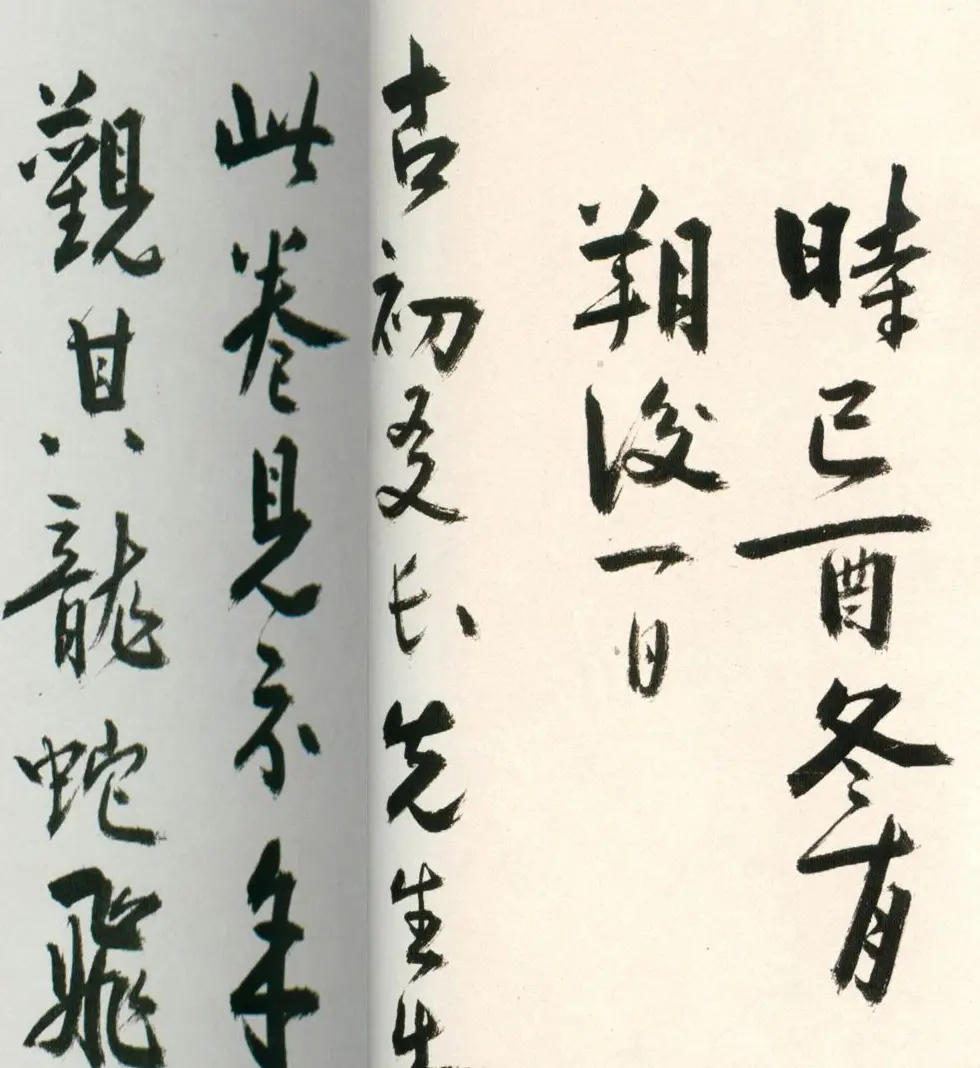 時己酉冬有
朔後一日
吉初友長先生
此卷見示余
觀其龍蛇飛